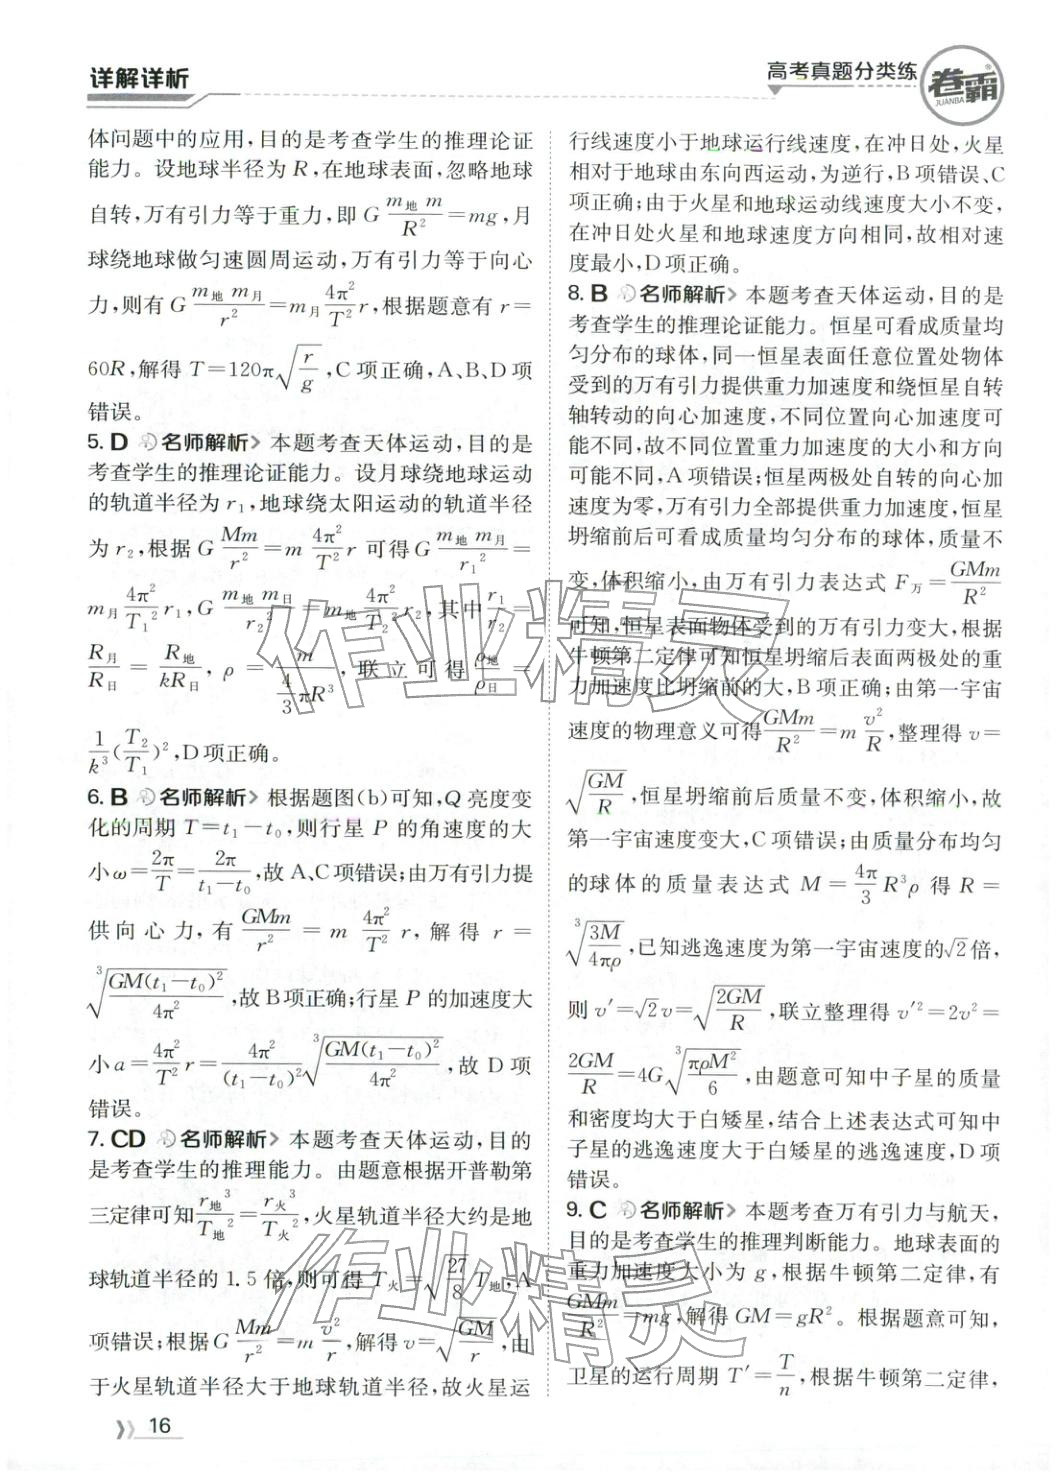 详解详析
高考真题分类练
卷霸
JUANBA
体问题中的应用,目的是考查学生的推理论证
能力。设地球半径为 R,在地球表面,忽略地球
自转,万有引力等于重力,即 G m地 m/R² = mg,月
球绕地球做匀速圆周运动,万有引力等于向心
力,则有 G m地 m月/r² = m月 4π²/T² r,根据题意有 r=
60R,解得 T=120π√(r/g),C 项正确,A、B、D 项
错误。
5. D 名师解析> 本题考查天体运动,目的是
考查学生的推理论证能力。设月球绕地球运动
的轨道半径为 r₁,地球绕太阳运动的轨道半径
为 r₂,根据 G Mm/r² = m 4π²/T² r 可得 G m地 m月/r₁² =
m月 4π²/T₁² r₁,G m地 m日/r₂² = m地 4π²/T₂² r₂,其中 r₁/r₂ =
R月/R日 = R地/kR日,ρ = m/(4/3 πR³),联立可得 ρ地/ρ日 =
1/k³ (T₂/T₁)²,D 项正确。
6. B 名师解析> 根据题图(b)可知,Q 亮度变
化的周期 T=t₁-t₀,则行星 P 的角速度的大
小 ω=2π/T=2π/(t₁-t₀),故 A、C 项错误;由万有引力提
供向心力,有 GMm/r² = m 4π²/T² r,解得 r =
³√(GM(t₁-t₀)²/4π²),故 B 项正确;行星 P 的加速度大
小 a=4π²/T² r=4π²/(t₁-t₀)² ³√(GM(t₁-t₀)²/4π²),故 D 项
错误。
7. CD 名师解析> 本题考查天体运动,目的
是考查学生的推理能力。由题意根据开普勒第
三定律可知 r地³/T地² = r火³/T火²,火星轨道半径大约是地
球轨道半径的 1.5 倍,则可得 T火=√(27/8) T地,A
项错误;根据 G Mm/r² = m v²/r,解得 v=√(GM/r),由
于火星轨道半径大于地球轨道半径,故火星运
行线速度小于地球运行线速度,在冲日处,火星
相对于地球由东向西运动,为逆行,B 项错误、C
项正确;由于火星和地球运动线速度大小不变,
在冲日处火星和地球速度方向相同,故相对速
度最小,D 项正确。
8. B 名师解析> 本题考查天体运动,目的是
考查学生的推理论证能力。恒星可看成质量均
匀分布的球体,同一恒星表面任意位置处物体
受到的万有引力提供重力加速度和绕恒星自转
轴转动的向心加速度,不同位置向心加速度可
能不同,故不同位置重力加速度的大小和方向
可能不同,A 项错误;恒星两极处自转的向心加
速度为零,万有引力全部提供重力加速度,恒星
坍缩前后可看成质量均匀分布的球体,质量不
变,体积缩小,由万有引力表达式 F万 = GMm/R²
可知,恒星表面物体受到的万有引力变大,根据
牛顿第二定律可知恒星坍缩后表面两极处的重
力加速度比坍缩前的大,B 项正确;由第一宇宙
速度的物理意义可得 GMm/R² = m v²/R,整理得 v=
√(GM/R),恒星坍缩前后质量不变,体积缩小,故
第一宇宙速度变大,C 项错误;由质量分布均匀
的球体的质量表达式 M = 4π/3 R³ρ 得 R =
³√(3M/4πρ),已知逃逸速度为第一宇宙速度的√2倍,
则 v′=√2v=√(2GM/R),联立整理得 v′²=2v²=
2GM/R=4G ³√(πρM²/6),由题意可知中子星的质量
和密度均大于白矮星,结合上述表达式可知中
子星的逃逸速度大于白矮星的逃逸速度,D 项
错误。
9. C 名师解析> 本题考查万有引力与航天,
目的是考查学生的推理判断能力。地球表面的
重力加速度大小为 g,根据牛顿第二定律,有
GMm/R² = mg,解得 GM=gR²。根据题意可知,
卫星的运行周期 T′=T/n,根据牛顿第二定律,
16
作业精灵
作业精灵